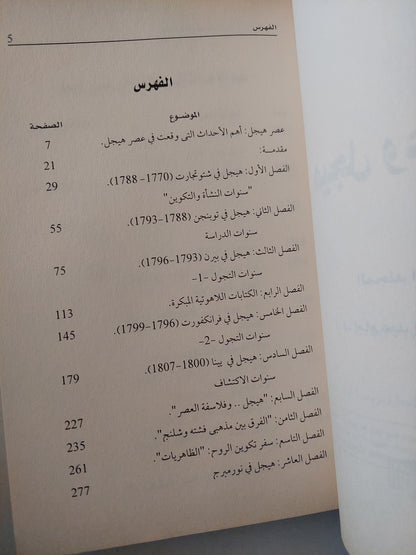 الفهرس 5
الفهرس
الموضوع الصفحة
عصر هيجل: أهم الأحداث التى وقعت في عصر هيجل. 7
مقدمة: 21
الفصل الأول: هيجل في شتوتجارت (1770- 1788). 29
"سنوات النشأة والتكوين"
الفصل الثاني: هيجل في توبنجن (1788-1793). 55
سنوات الدراسة
الفصل الثالث: هيجل في بيرن (1793-1796). 75
سنوات التجول -1-
الفصل الرابع: الكتابات اللاهوتية المبكرة. 113
الفصل الخامس: هيجل في فرانكفورت (1796-1799). 145
سنوات التجول -2-
الفصل السادس: هيجل في يينا (1800-1807). 179
سنوات الاكتشاف
الفصل السابع: "هيجل .. وفلاسفة العصر". 227
الفصل الثامن: "الفرق بين مذهبى فشته وشلنج". 235
الفصل التاسع: سفر تكوين الروح: "الظاهريات". 261
الفصل العاشر: هيجل في نورمبرج 277
هيجل